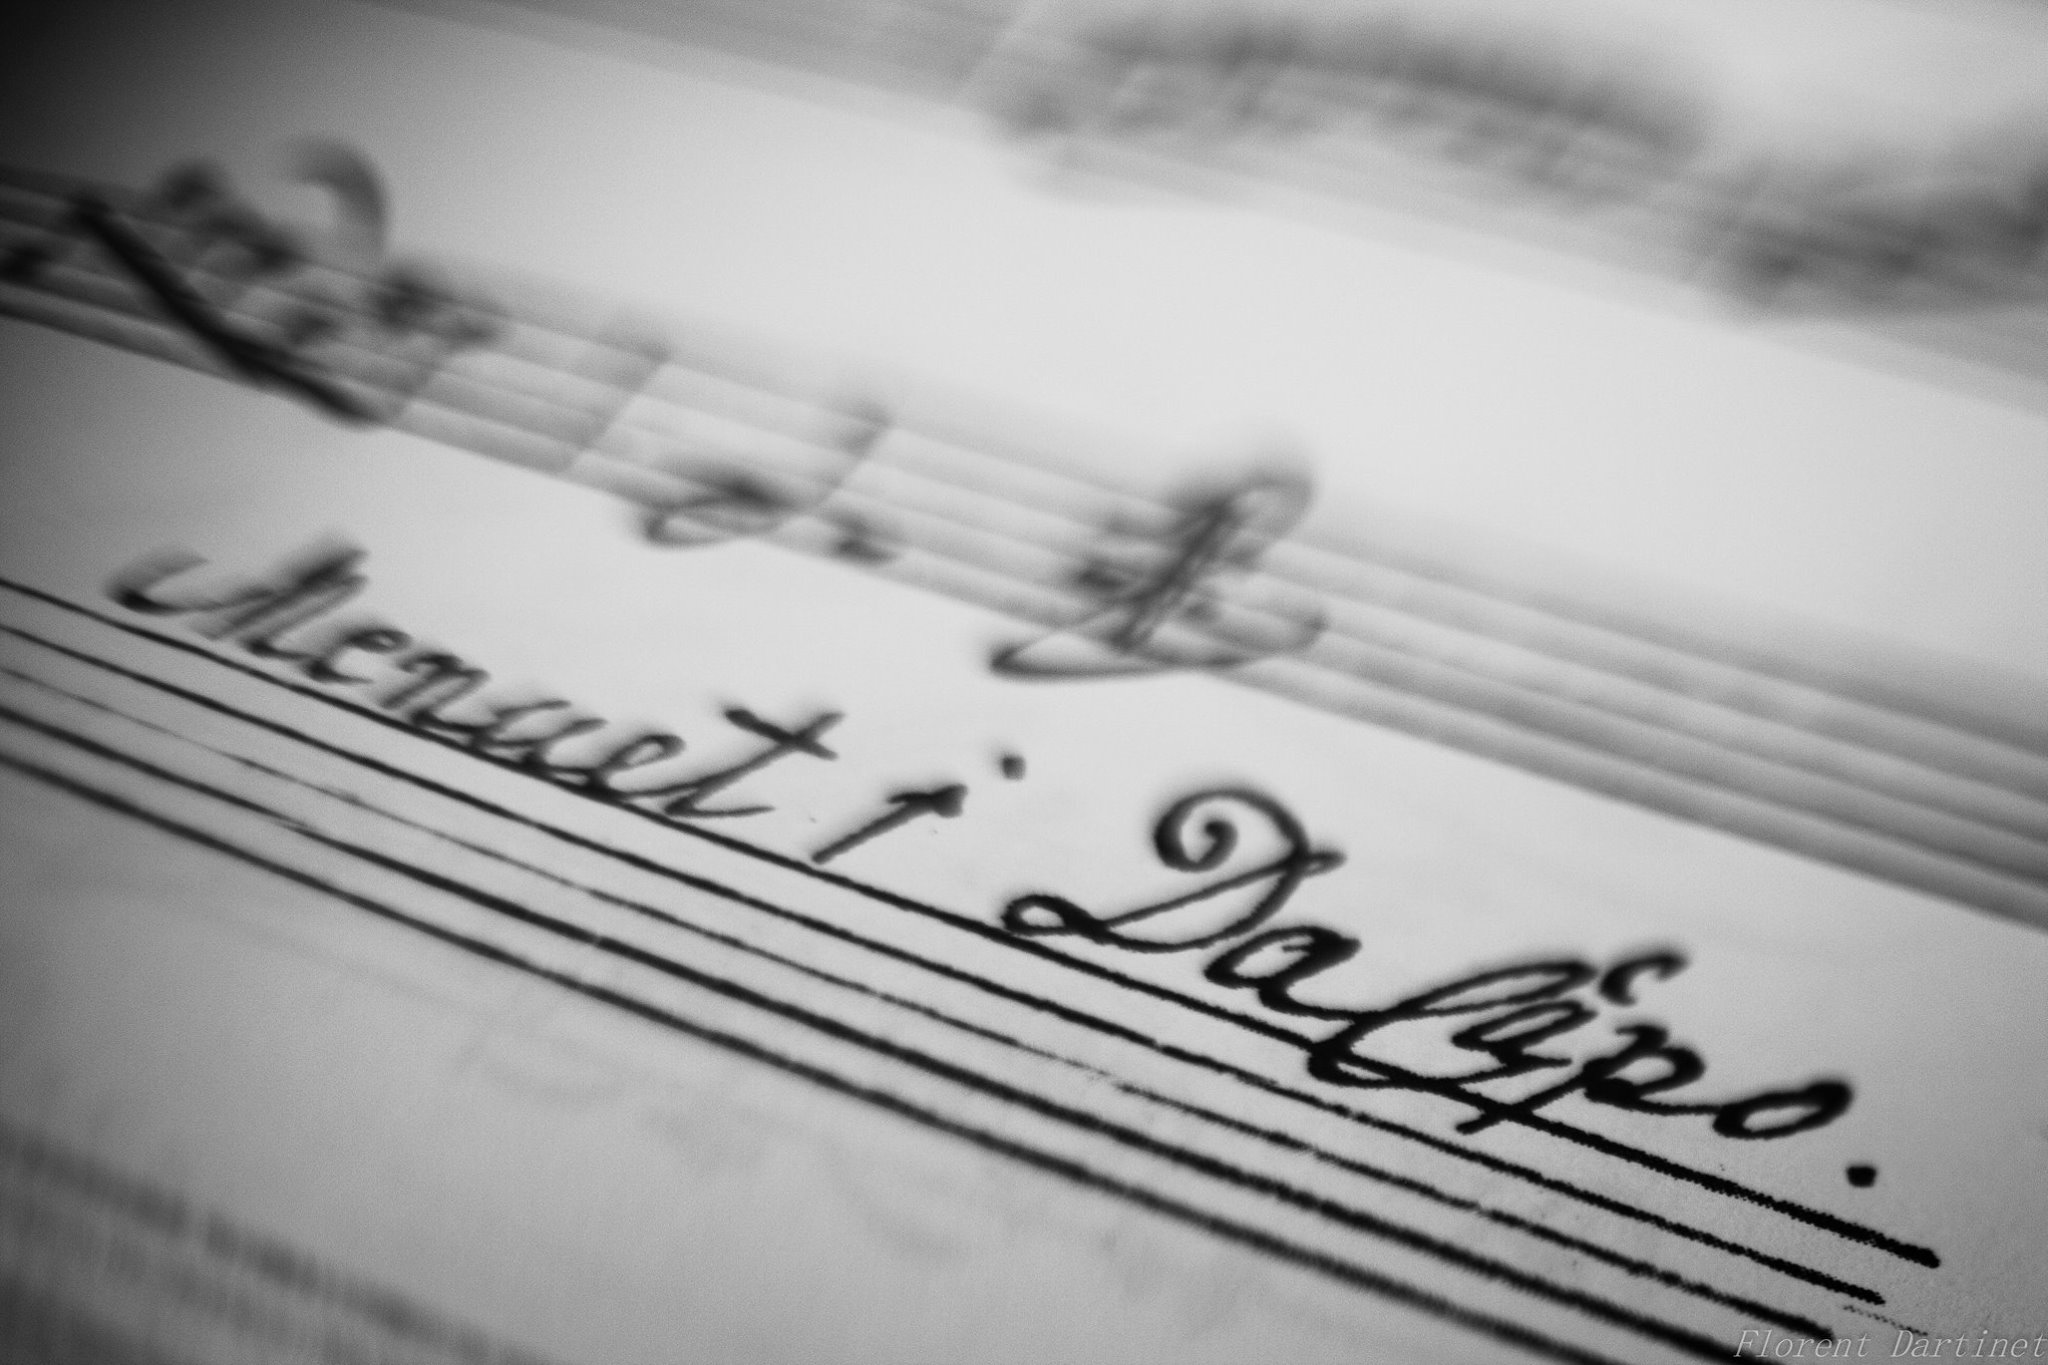 Menuet 1° Da Capo.
Florent Dartinet